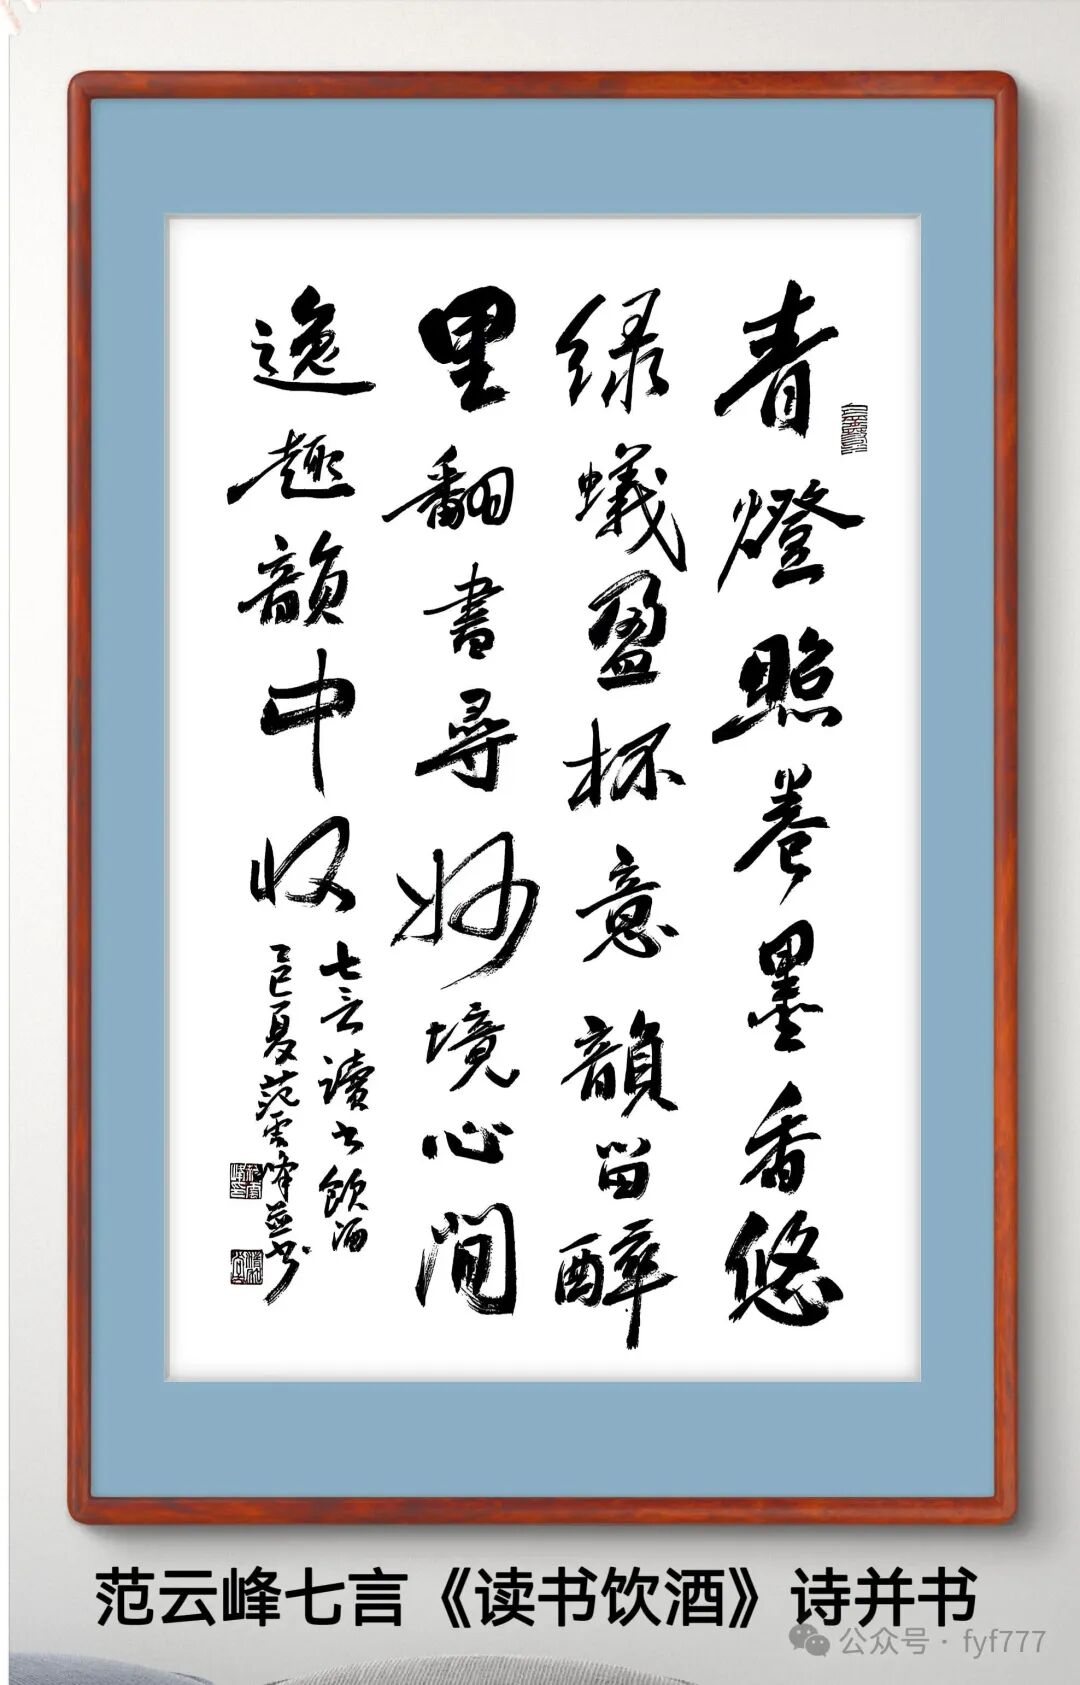 青燈照卷墨香悠
绿蟻盈杯意韻留醉
里翻書尋妙境心間
逸趣韻中收
七言讀书飲酒
乙巳夏范雲峰并书
范云峰七言《读书饮酒》诗并书
公众号·fyf777